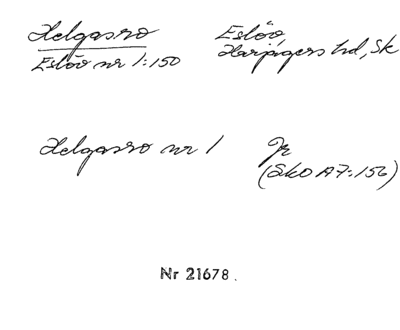 Helgasro Eslöv,
Eslöv nr 1:150 Harjagers hd, Sk
Helgasro nr 1 Jr
(SkO A7:156)
Nr 21678.